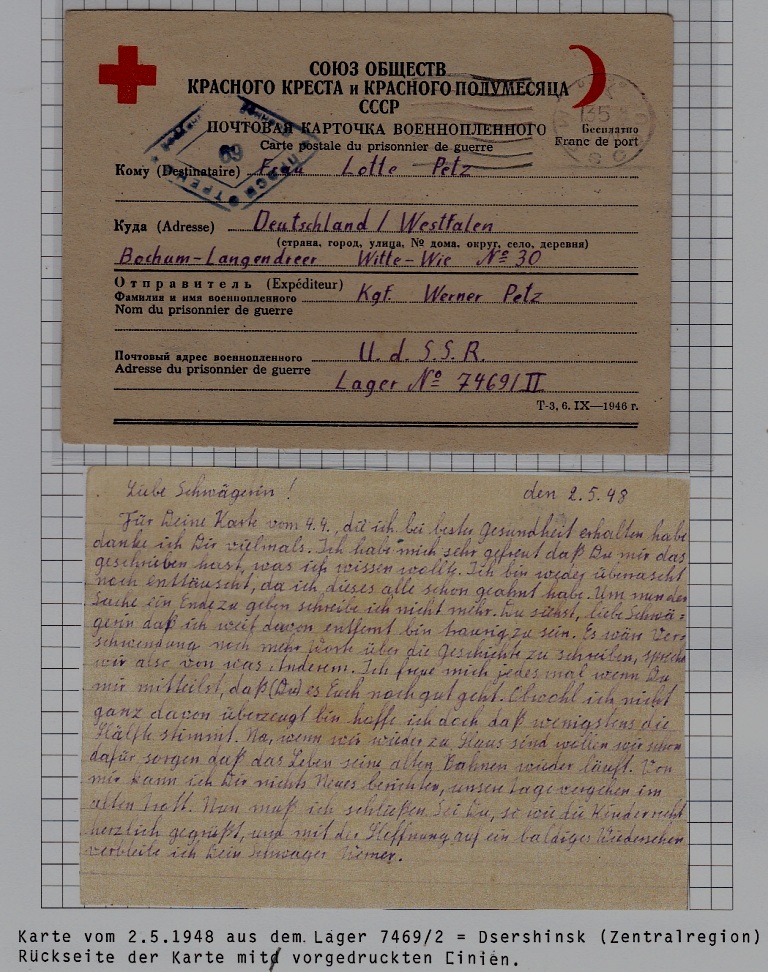 СОЮЗ ОБЩЕСТВ
КРАСНОГО КРЕСТА и КРАСНОГО ПОЛУМЕСЯЦА
СССР
ПОЧТОВАЯ КАРТОЧКА ВОЕННОПЛЕННОГО
Бесплатно
Carte postale du prisonnier de guerre
Franc de port
69
Кому (Destinataire) Frau Lotte Petz
Куда (Adresse) Deutschland / Westfalen
(страна, город, улица, № дома, округ, село, деревня)
Bochum-Langendreer Witte-Wie № 30
Отправитель (Expéditeur)
Фамилия и имя военнопленного Kgf. Werner Petz
Nom du prisonnier de guerre
Почтовый адрес военнопленного U. d. S. S. R.
Adresse du prisonnier de guerre
Lager № 7469/II
Т-3, 6. IX—1946 г.
Liebe Schwägerin! den 2.5.48
Für Deine Karte vom 4.4., die ich bei bester Gesundheit erhalten habe
danke ich Dir vielmals. Ich habe mich sehr gefreut daß Du mir das
geschrieben hast, was ich wissen wollte. Ich bin weder überrascht
noch enttäuscht, da ich dieses alle schon geahnt habe. Um nun der
Sache ein Ende zu geben schreibe ich nicht mehr. Du siehst, liebe Schwä-
gerin daß ich weit davon entfernt bin traurig zu sein. Es wäre Ver-
schwendung noch mehr Worte über die Geschichte zu schreiben, sprechen
wir also von was Anderem. Ich freue mich jedes mal wenn Du
mir mitteilst, daß (Du) es Euch noch gut geht. Obwohl ich nicht
ganz davon überzeugt bin hoffe ich doch daß wenigstens die
Hälfte stimmt. Na, wenn wir wieder zu Haus sind wollen wir schon
dafür sorgen daß das Leben seine alten Bahnen wieder läuft. Von
mir kann ich Dir nichts Neues berichten, unsere Tage vergehen im
alten Trott. Nun muß ich schließen. Sei Du, so wie die Kinder recht
herzlich gegrüßt, und mit der Hoffnung auf ein baldiges Wiedersehen
verbleibe ich Dein Schwager Werner.
Karte vom 2.5.1948 aus dem Lager 7469/2 = Dsershinsk (Zentralregion)
Rückseite der Karte mit vorgedruckten Linien.